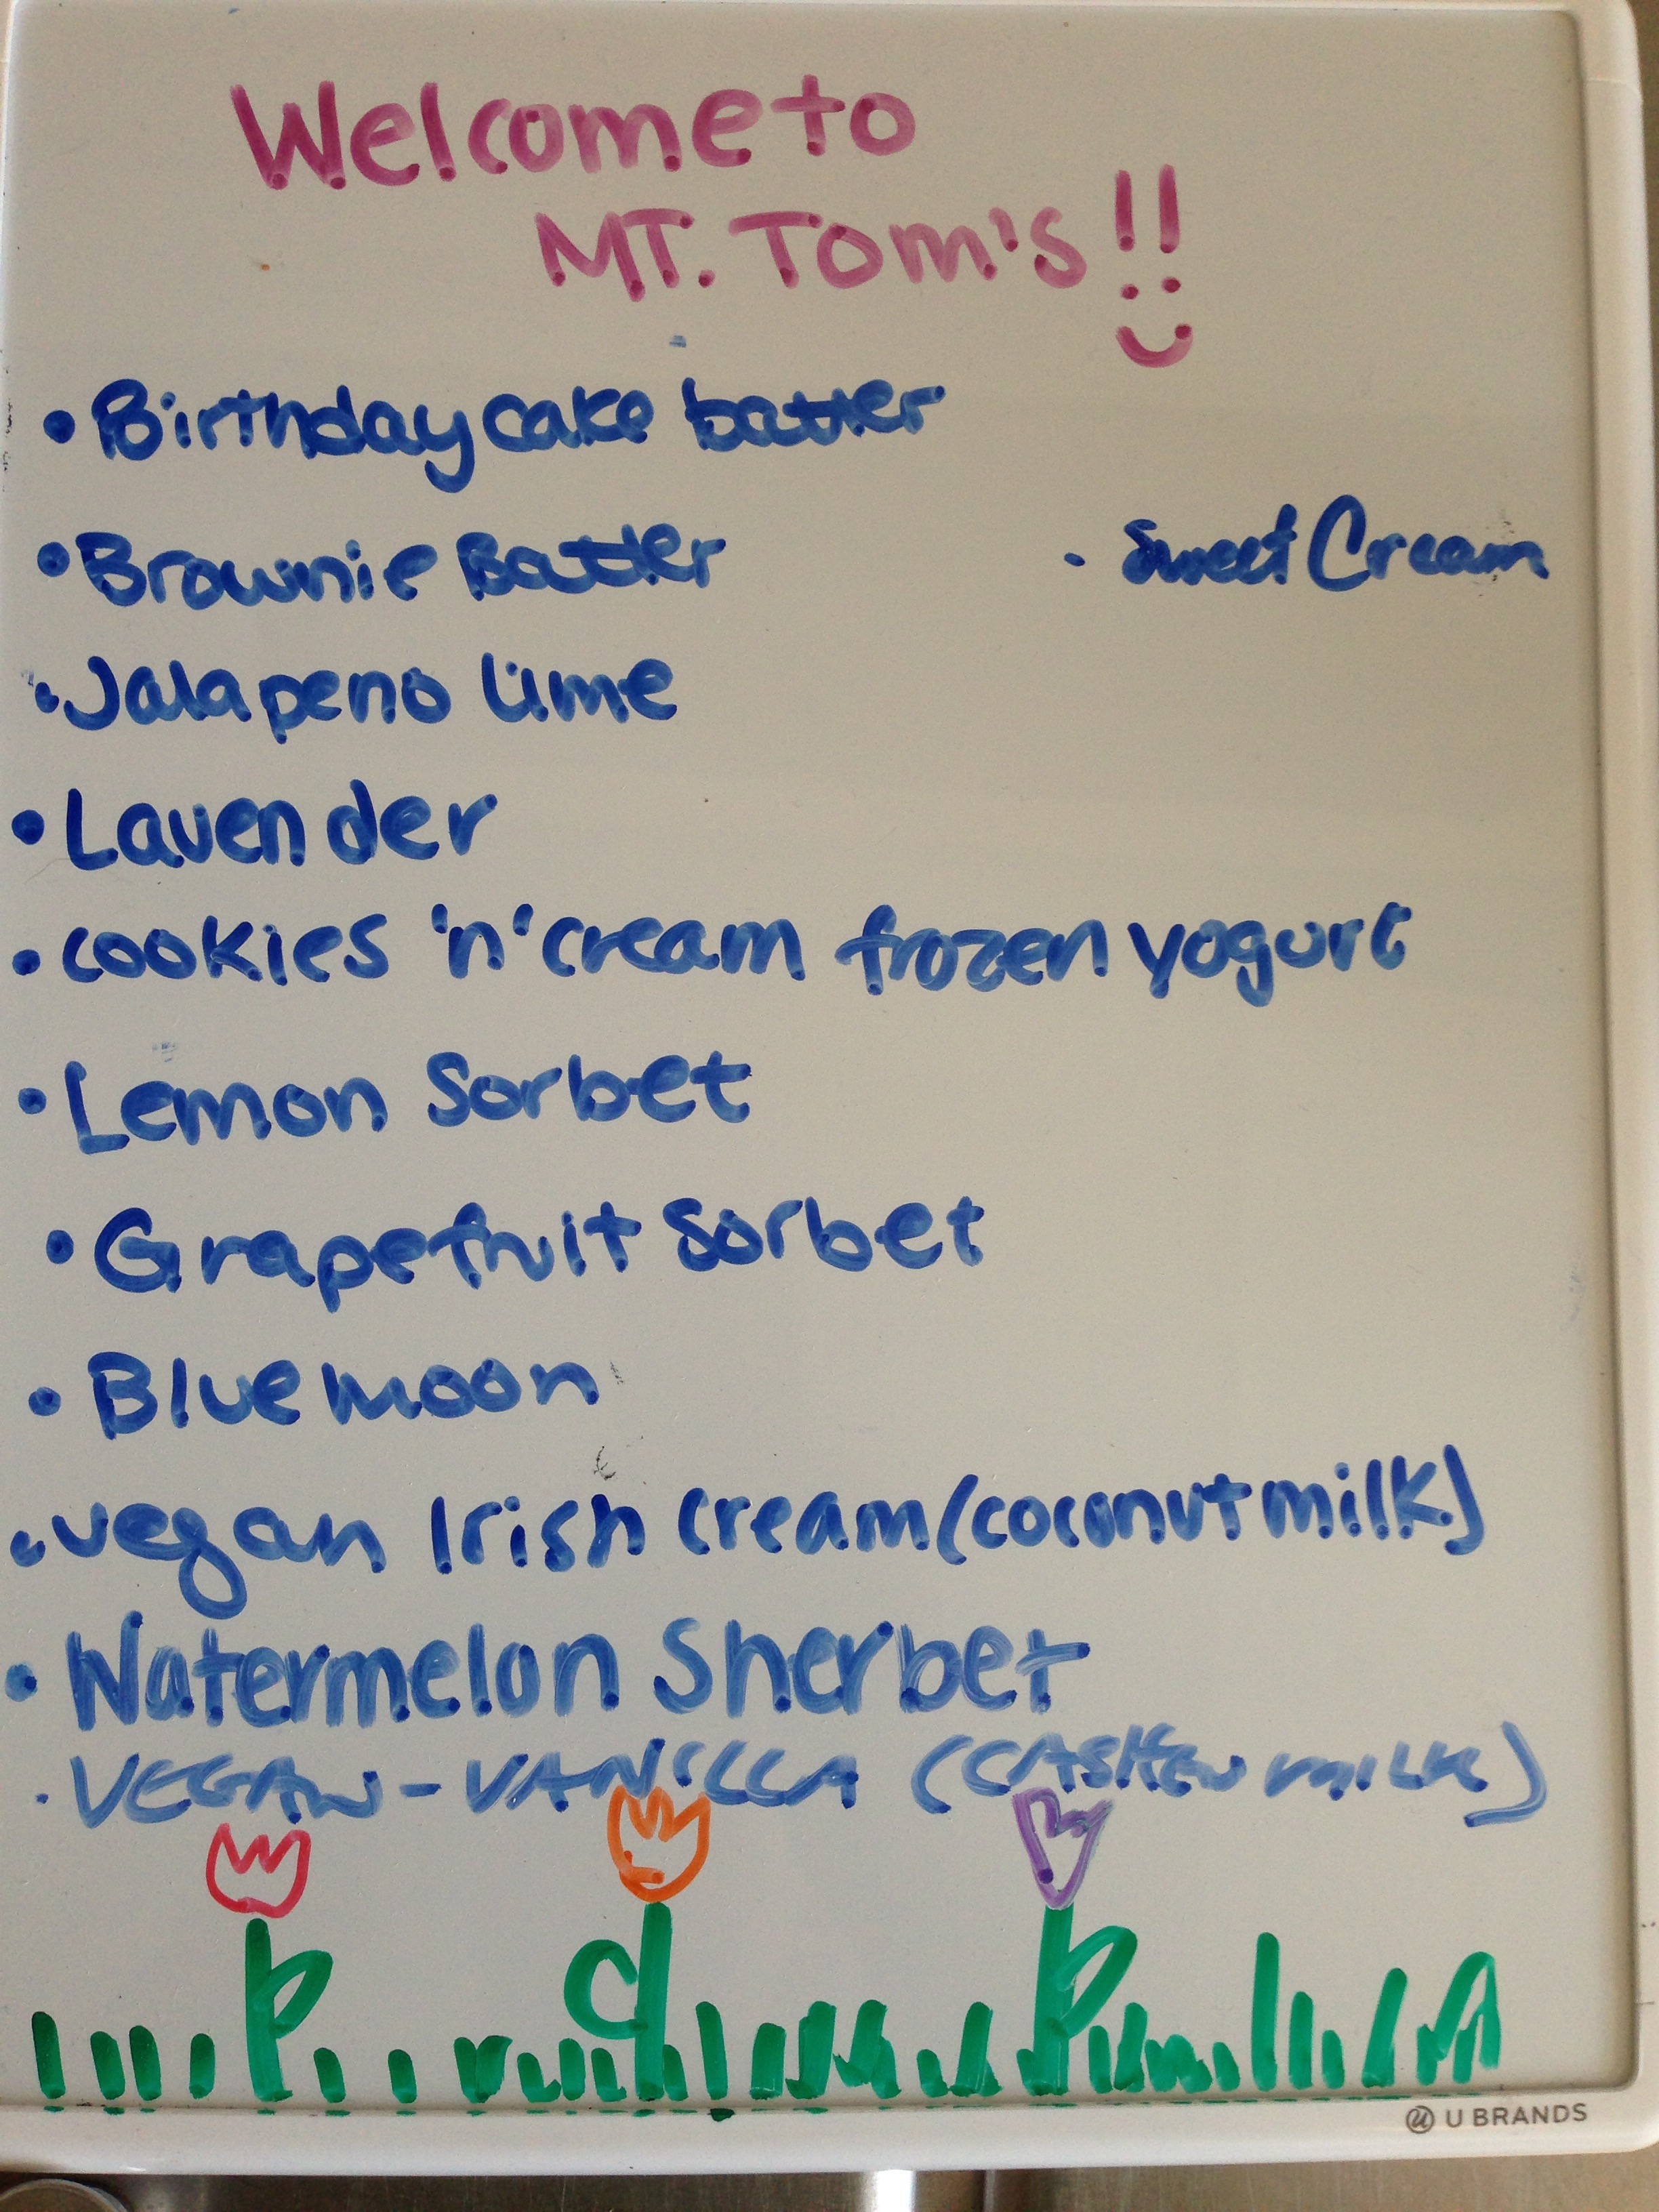 Welcome to
MT. Tom's!!
• Birthday cake batter
• Brownie Batter
• Sweet Cream
• Jalapeno Lime
• Lavender
• cookies 'n' cream frozen yogurt
• Lemon Sorbet
• Grapefruit Sorbet
• Blue moon
• vegan Irish cream (coconut milk)
• Watermelon Sherbet
• VEGAN - VANILLA (CASHEW MILK)
U BRANDS